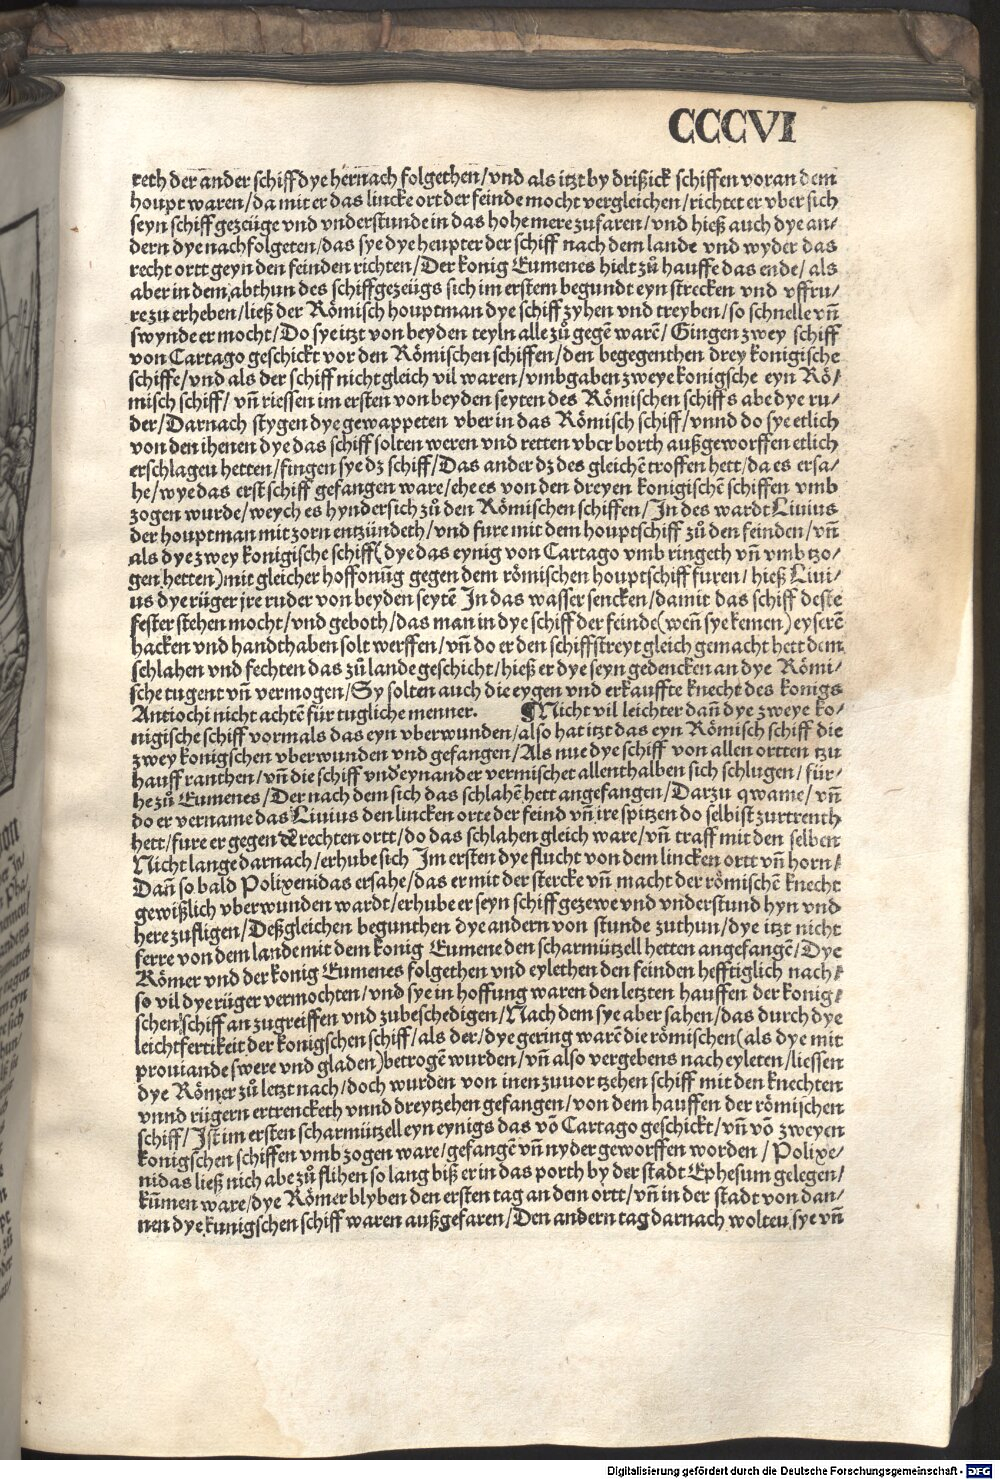 CCCVI
reth der ander schiff dye hernach folgethen/vnd als itzt by drißick schiffen voran dem
houpt waren/da mit er das lincke ort der feinde mocht vergleichen/richtet er vber sich
seyn schiff gezeüge vnd vnderstunde in das hohe mere zufaren/vnd hieß auch dye an/
dern dye nachfolgeten/das sye dye heupter der schiff nach dem lande vnd wyder das
recht ortt geyn den feinden richten/Der konig Eumenes hielt zů hauffe das ende/als
aber in dem abthun des schiffgezeügs sich im erstem begundt eyn strecken vnd vffru/
re zu erheben/ließ der Römisch houptman dye schiff zyhen vnd treyben/so schnelle vñ
swynde er mocht/Do sye itzt von beyden teyln alle zů gegē warē/Gingen zwey schiff
von Cartago geschickt vor den Römischen schiffen/den begegenthen drey konigische
schiffe/vnd als der schiff nicht gleich vil waren/vmbgaben zweye konigsche eyn Rö/
misch schiff/vñ riessen im ersten von beyden seyten des Römischen schiffs abe dye ru/
der/Darnach stygen dye gewappeten vber in das Römisch schiff/vnnd do sye etlich
von den ihenen dye das schiff solten weren vnd retten vber borth außgeworffen etlich
erschlagen hetten/fingen sye dz schiff/Das ander dz des gleichē troffen hett/da es ersa/
he/wye das erst schiff gefangen ware/ehe es von den dreyen konigischē schiffen vmb
zogen wurde/weych es hyndersich zů den Römischen schiffen/In des wardt Liuius
der houptman mit zorn entzündeth/vnd fure mit dem houptschiff zů den feinden/vñ
als dye zwey konigische schiff(dye das eynig von Cartago vmb ringeth vñ vmb tzo/
gen hetten)mit gleicher hoffonūg gegen dem römischen houptschiff furen/hieß Liui/
us dye rüger jre ruder von beyden seytē In das wasser sencken/damit das schiff deste
fester stehen mocht/vnd geboth/das man in dye schiff der feinde(weñ sye kemen)eyserē
hacken vnd handthaben solt werffen/vñ do er den schiffstreyt gleich gemacht hett dem
schlahen vnd fechten das zů lande geschicht/hieß er dye seyn gedencken an dye Römi/
sche tugent vñ vermogen/Sy solten auch die eygen vnd erkauffte knecht des konigs
Antiochi nicht achtē für tugliche menner. ¶Nicht vil leichter dañ dye zweye ko/
nigische schiff vormals das eyn vberwunden/also hat itzt das eyn Römisch schiff die
zwey konigschen vberwunden vnd gefangen/Als nue dye schiff von allen ortten tzu
hauff ranthen/vñ die schiff vnd eynander vermischet allenthalben sich schlugen/für/
he zů Eumenes/Der nach dem sich das schlahē hett angefangen/Darzu qwame/vñ
do er vername das Liuius den lincken orte der feind vñ ire spitzen do selbist zurtrenth
hett/fure er gegen dē rechten ortt/do das schlahen gleich ware/vñ traff mit den selben
Nicht lange darnach/erhube sich Im ersten dye flucht von dem lincken ortt vñ horn/
Dañ so bald Polixenidas ersahe/das er mit der stercke vñ macht der römischē knecht
gewißlich vberwunden wardt/erhube er seyn schiff gezewe vnd vnderstund hyn vnd
here zufligen/Deßgleichen begunthen dye andern von stunde zuthun/dye itzt nicht
ferre von dem lande mit dem konig Eumene den scharmützell hetten angefangē/Dye
Römer vnd der konig Eumenes folgethen vnd eylethen den feinden hefftiglich nach/
so vil dye rüger vermochten/vnd sye in hoffung waren den letzten hauffen der konig/
schen schiff an zugreiffen vnd zubeschedigen/Nach dem sye aber sahen/das durch dye
leichtfertikeit der konigschen schiff/als der/dye gering warē die römischen(als dye mit
prouiande swere vnd gladen)betrogē wurden/vñ also vergebens nach eyleten/liessen
dye Römer zů letzt nach/doch wurden von inen zuuor tzehen schiff mit den knechten
vnnd rügern ertrencketh vnnd dreytzehen gefangen/von dem hauffen der römischen
schiff/Ist im ersten scharmützell eyn eynigs das vō Cartago geschickt/vñ vō zweyen
konigschen schiffen vmb zogen ware/gefangē vñ nyder geworffen worden/Polixe/
nidas ließ nich abe zů flihen so lang biß er in das porth by der stadt Ephesum gelegen/
kūmen ware/dye Römer blyben den ersten tag an dem ortt/vñ in der stadt von dan/
nen dye kunigschen schiff waren außgefaren/Den andern tag darnach wolten sye vñ
Digitalisierung gefördert durch die Deutsche Forschungsgemeinschaft - DFG